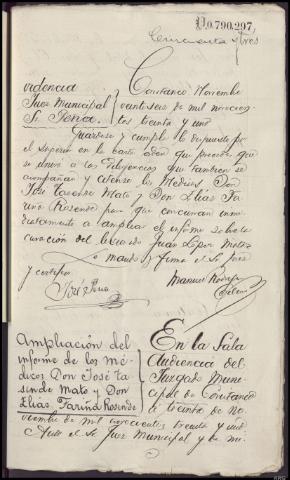 D.0.790.297,
Cincuenta y tres
Providencia
Juez Municipal
Sr. Peria.
Constanco Noviembre
veintiseis de mil novecien-
tos treinta y uno
Guardese y cumplase lo dispuesto por
el Superior en la carta orden que precede, que
se unirá a las diligencias que tambien se
acompañan y citense los Medicos Don
José Tasende Mato y Don Elías Fa
riña Rosende para que concurran inme
diatamente a ampliar el informe sobre la
curación del lesionado Juan López Mato
lo mandó y firma el Sr Juez
y certifico.
José Peria
Manuel
Ampliación del
informe de los mé-
dicos Don José Ta
sende Mato y Don
Elías Fariña Rosende
En la Sala
Audiencia del
Juzgado Muni-
cipal de
a treinta de No
viembre de mil novecientos treinta y uno
Ante el Sr Juez Municipal y de mi